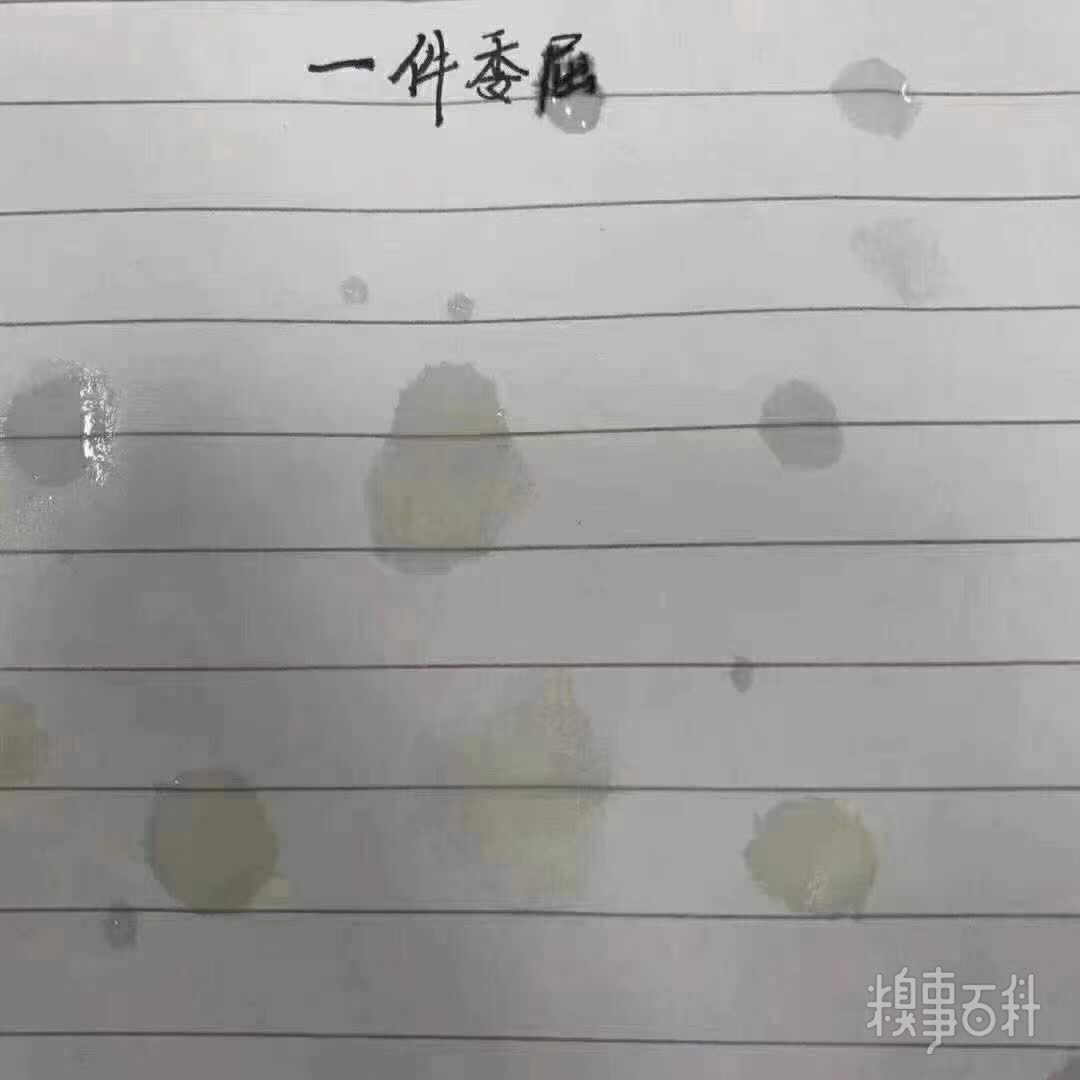 一件委屈
糗事百科